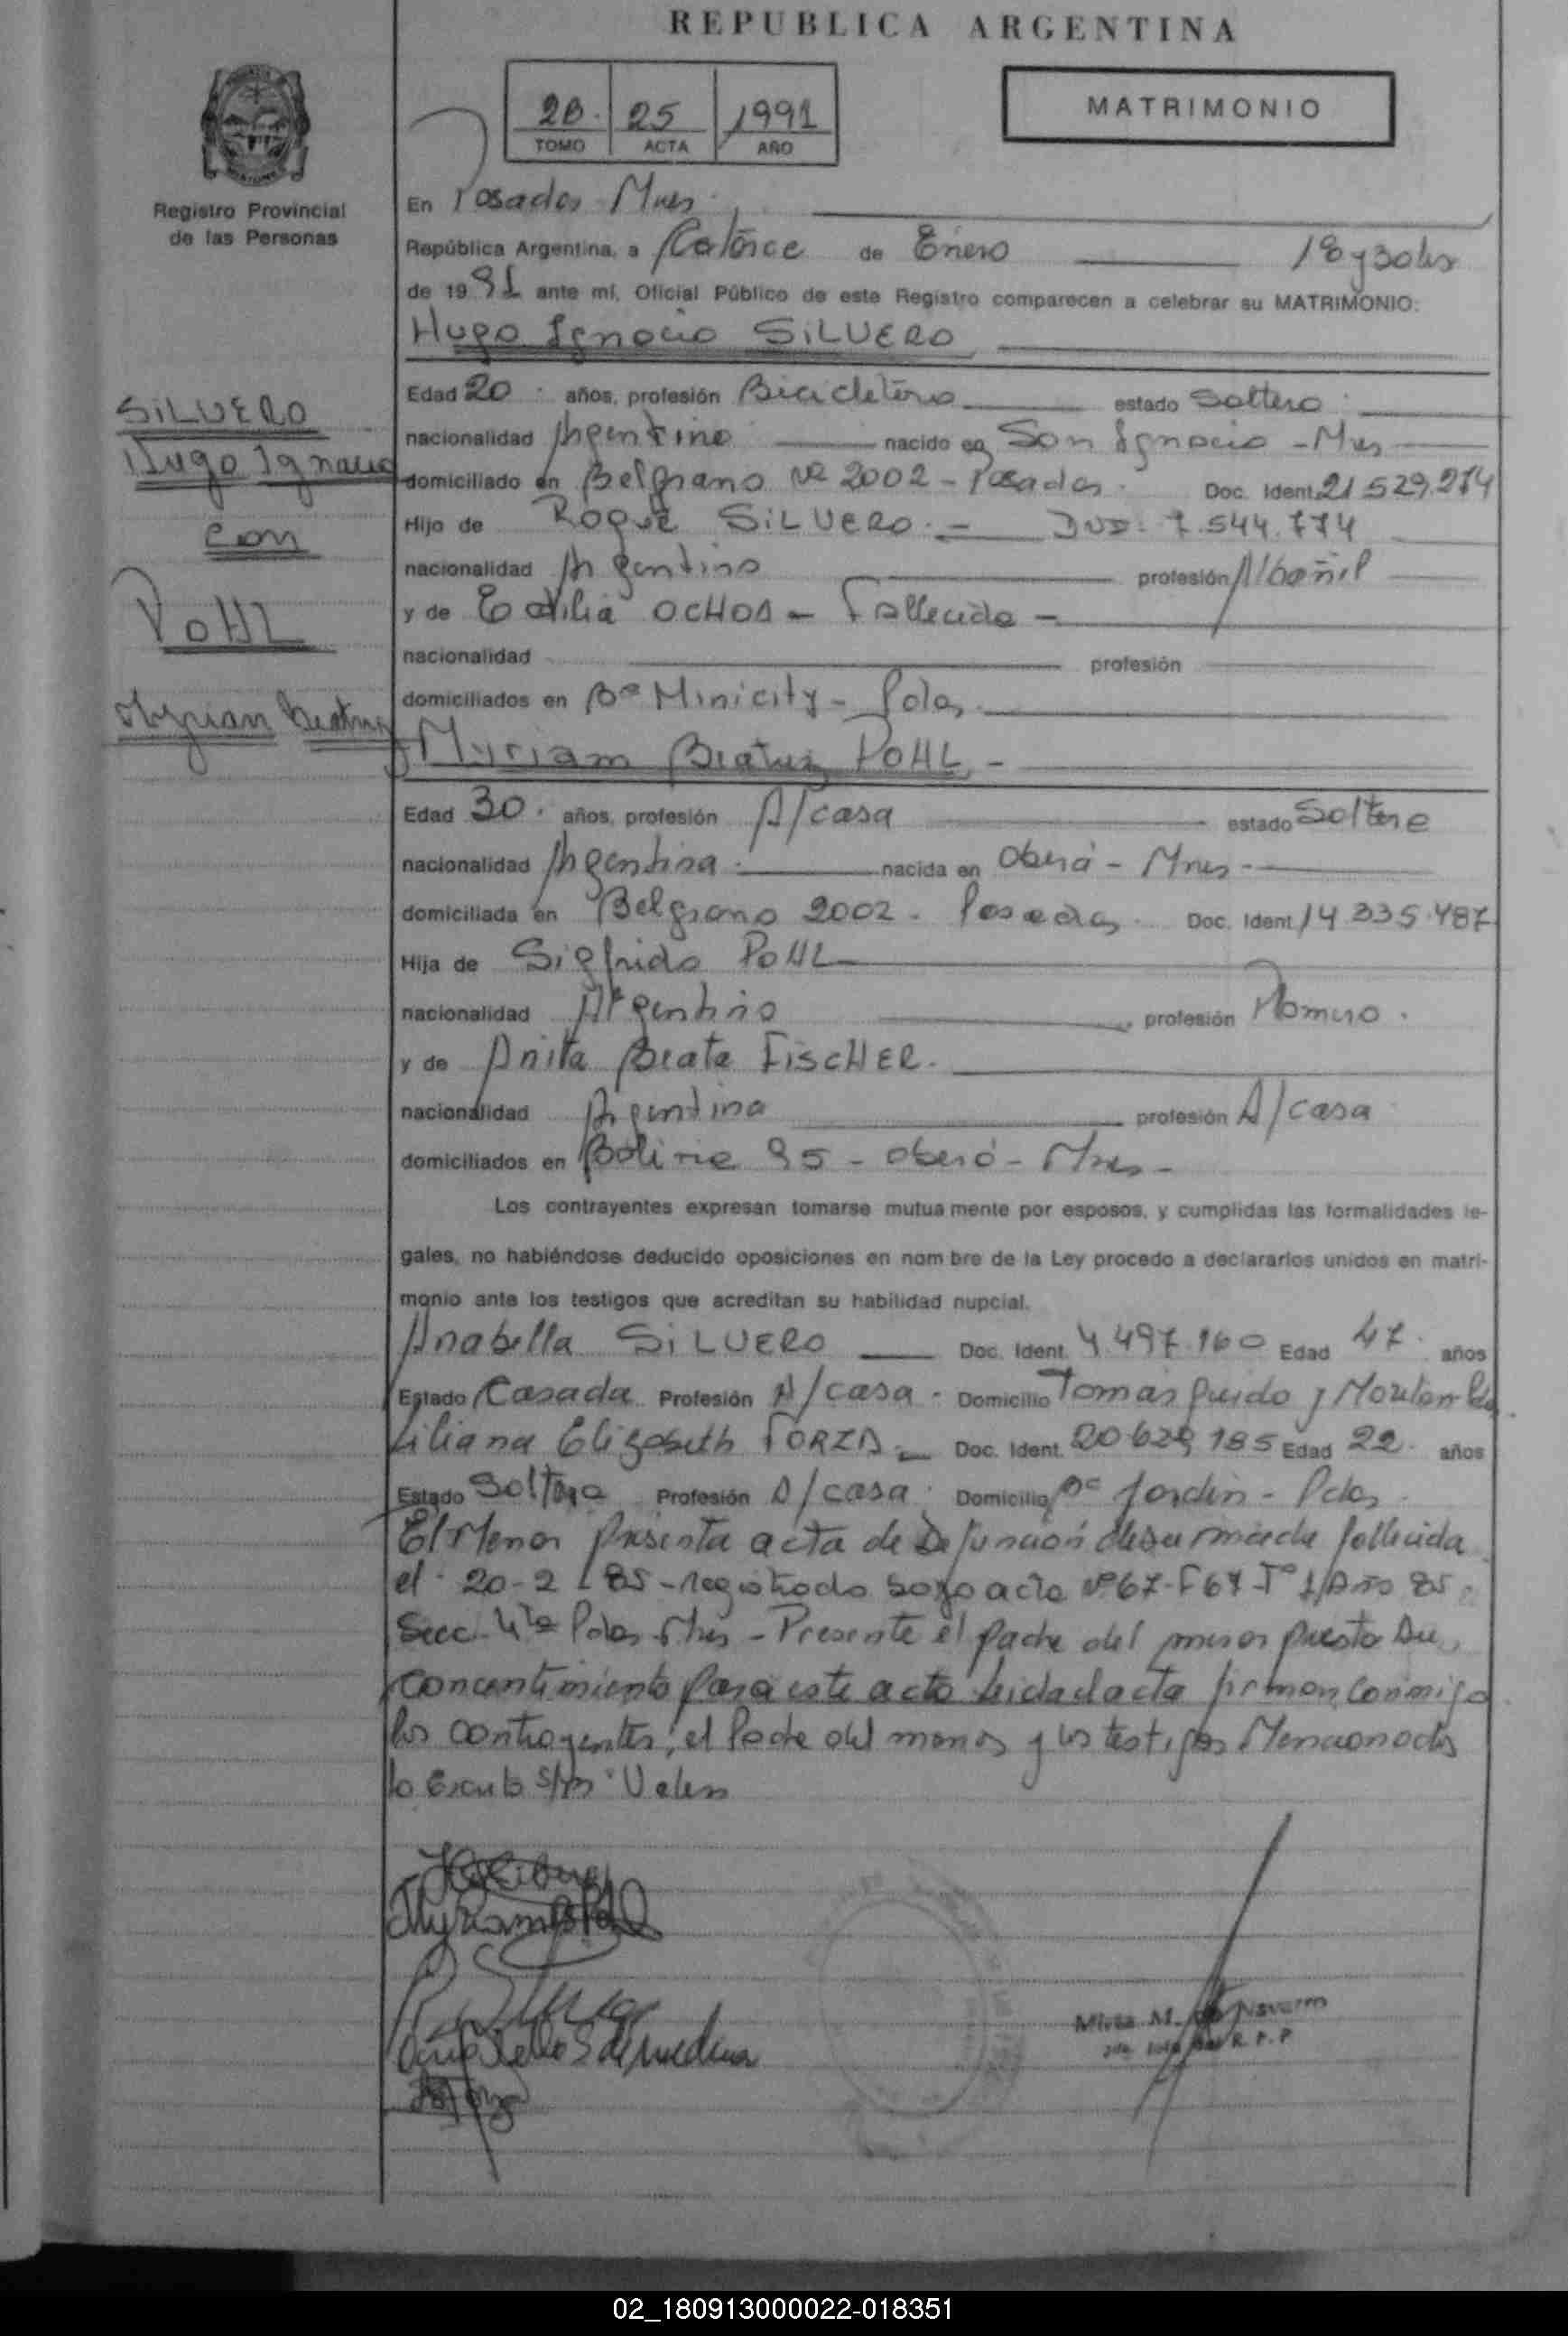 REPUBLICA ARGENTINA
2B. 25 1991
TOMO ACTA AÑO
MATRIMONIO
Registro Provincial
de las Personas
En Posadas Mnes.
República Argentina, a Catorce de Enero 18 y 30 hs
de 1991 ante mí, Oficial Público de este Registro comparecen a celebrar su MATRIMONIO:
Hugo Ignacio SILVERO
SILVERO
Hugo Ignacio
con
POHL
Myrian Beatriz
Edad 20. años, profesión Bicicletero estado Soltero
nacionalidad Argentino nacido en San Ignacio - Mnes
domiciliado en Belgrano Nº 2002 - Posadas. Doc. Ident. 21.529.274
Hijo de Roque SILVERO. - 7.544.774
nacionalidad Argentino profesión Albañil
y de OCHOA - Fallecida -
nacionalidad profesión
domiciliados en Bº Minicity - Pdas.
Myriam Beatriz POHL. -
Edad 30. años, profesión A/casa estado Soltera
nacionalidad Argentina. nacida en Oberá - Mnes -
domiciliada en Belgrano 2002 - Posadas. Doc. Ident. 14.335.487
Hija de Sigfrido POHL
nacionalidad Argentino profesión Plomero.
y de Anita Beata FISCHER.
nacionalidad Argentina profesión A/casa
domiciliados en Bolivia 95 - Oberá - Mnes -
Los contrayentes expresan tomarse mutuamente por esposos, y cumplidas las formalidades le-
gales, no habiéndose deducido oposiciones en nombre de la Ley procedo a declararlos unidos en matri-
monio ante los testigos que acreditan su habilidad nupcial.
Anabella SILVERO Doc. Ident. 4.497.160 Edad 47. años
Estado Casada Profesión A/casa. Domicilio Tomás Guido y
Liliana Elizabeth Doc. Ident. 20.629.185 Edad 22. años
Estado Soltera Profesión A/casa. Domicilio Bº Jardín - Pdas.
El Menor presenta acta de Defunción de su madre fallecida
el 20-2-85 - registrado bajo acta Nº 67-F 67-Tº 1 Año 85
Secc. 4ta Pdas. Mnes - Presente el padre del menor presta su
concentimiento para este acto leida el acta firman conmigo
los contrayentes, el Padre del menor y los testigos Mencionados
Vale
Mirta M. de Navarro
R. P. P.
02_180913000022-018351